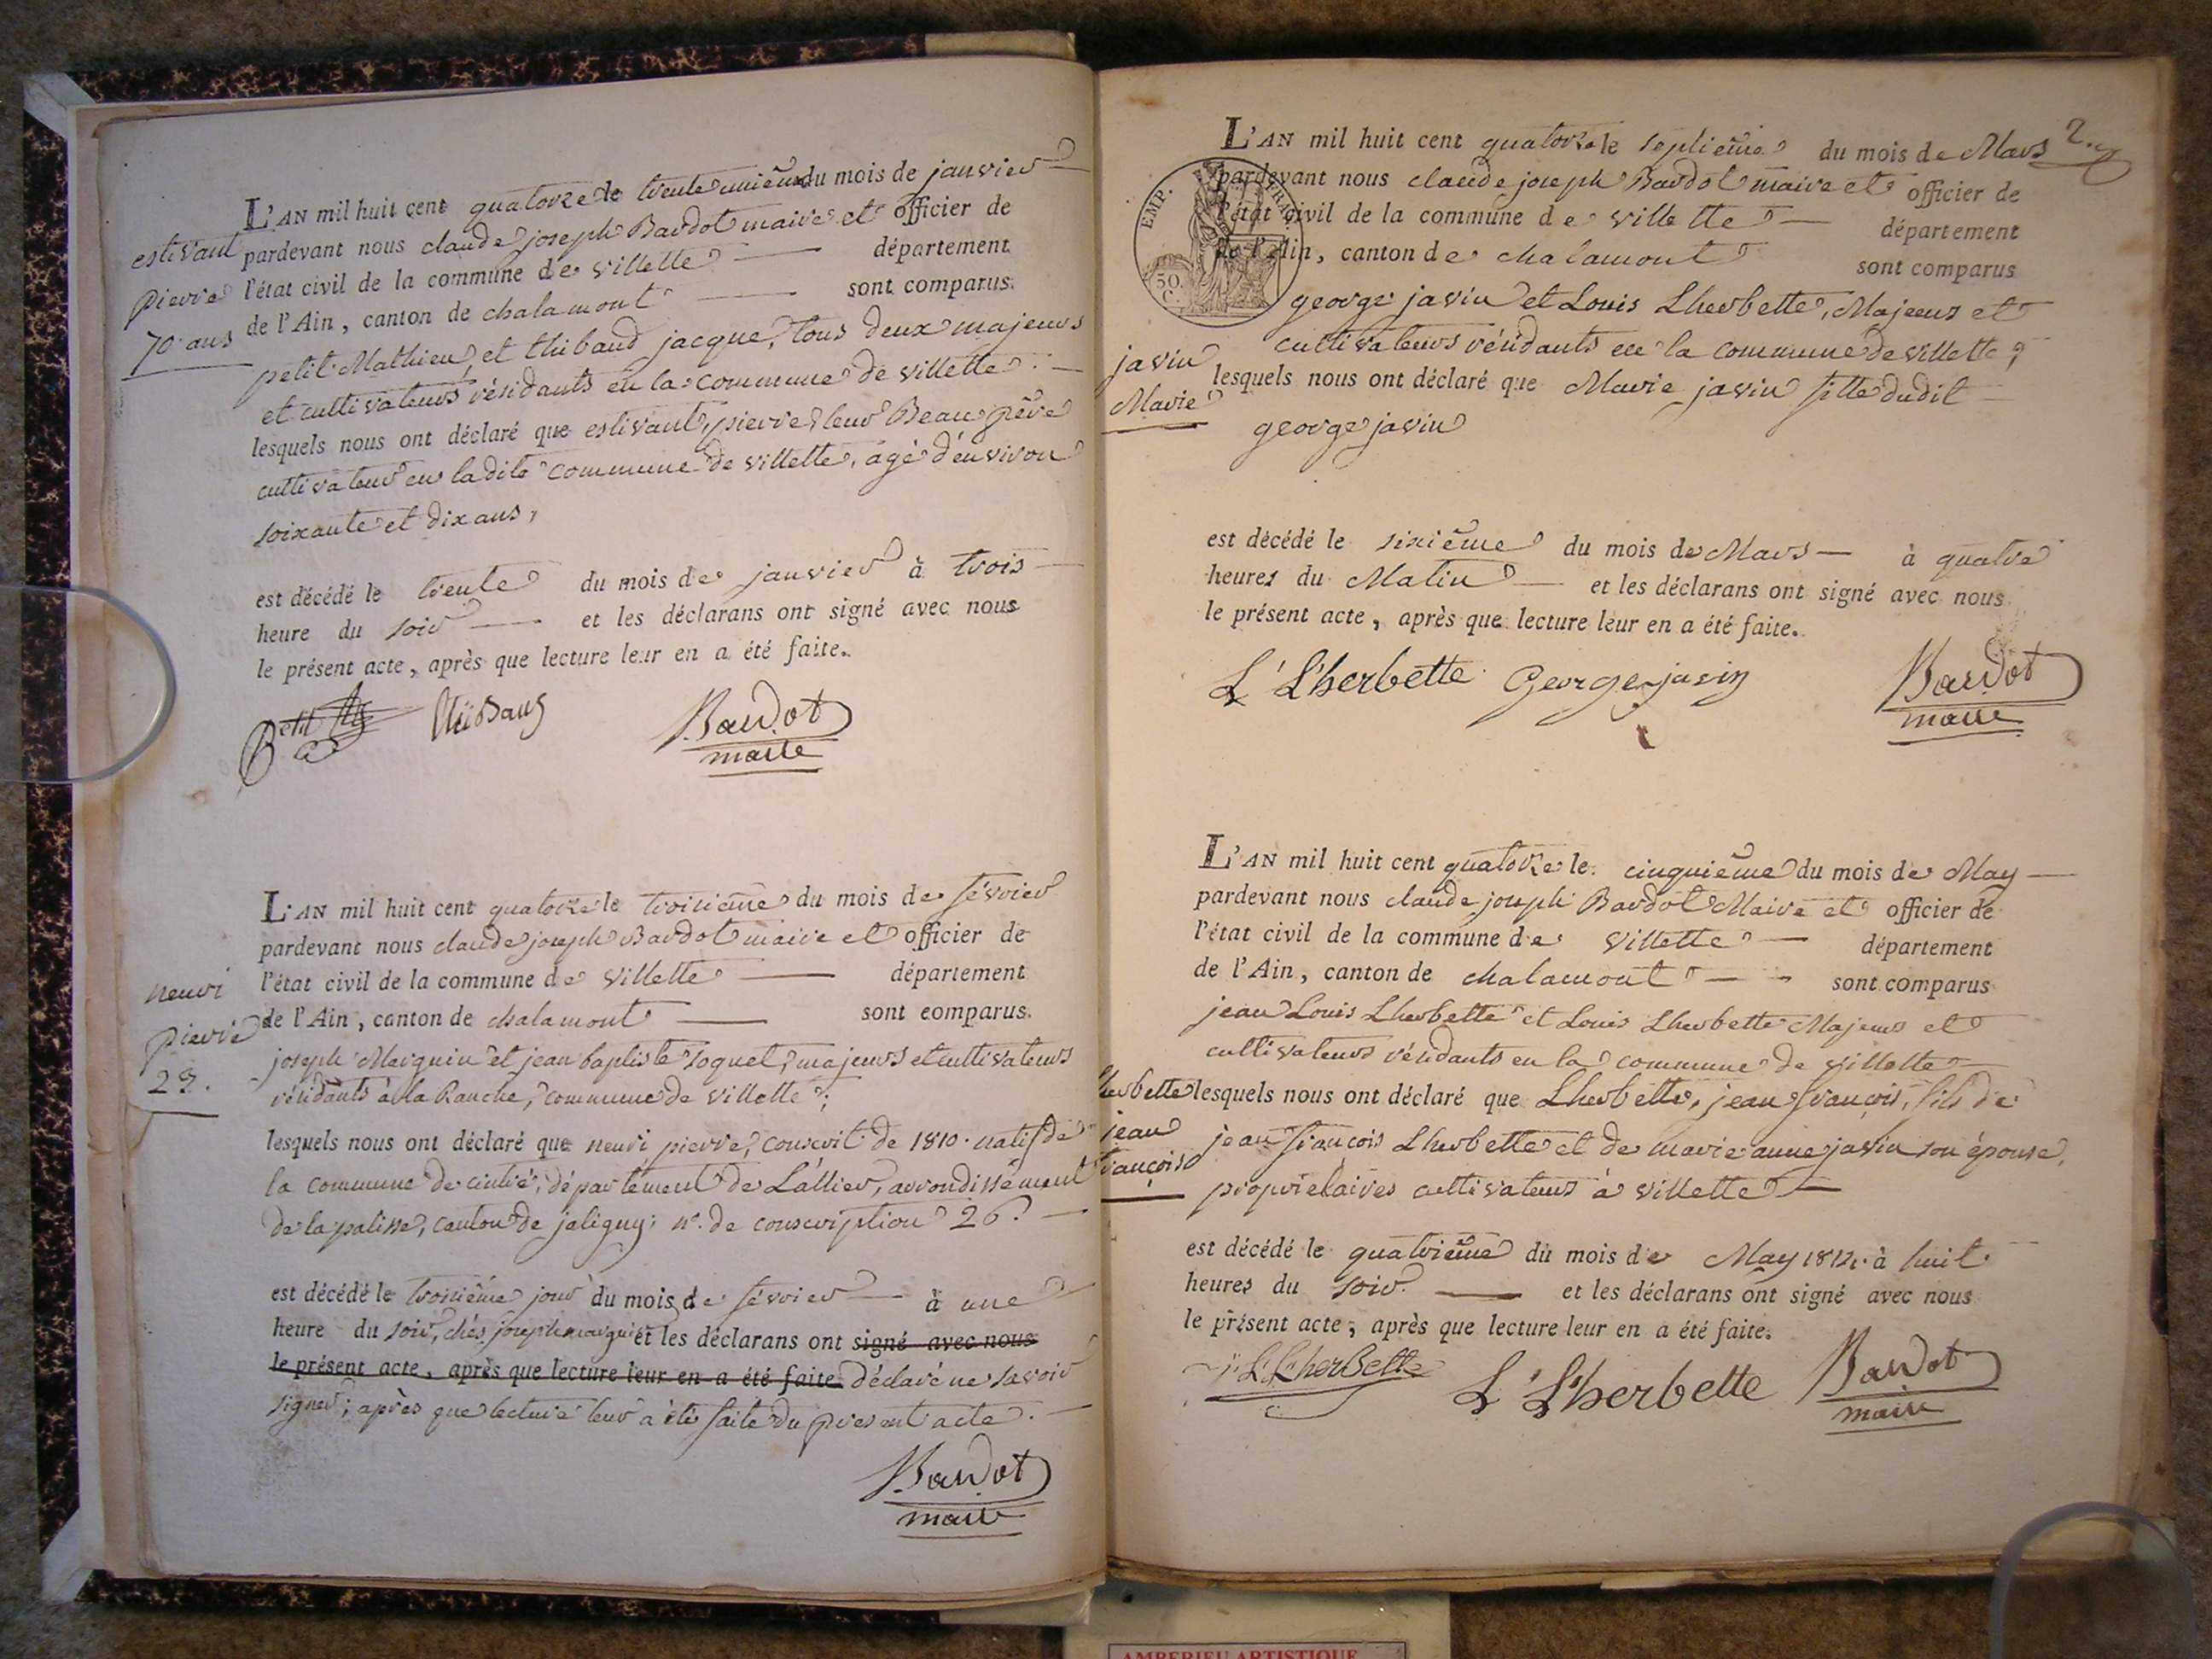 L'AN mil huit cent quatorze le trente unième du mois de janvier
estivant
pierre
70 ans
pardevant nous claude joseph Bardot maire et officier de
l'état civil de la commune de villette département
de l'Ain, canton de chalamont sont comparus.
petit Mathieu, et thibaud jacque, tous deux majeurs
et cultivateurs résidants en la commune de villette.
lesquels nous ont déclaré que estivant, pierre, leur Beau père
cultivateur en ladite commune de villette, agé d'environ
soixante et dix ans,
est décédé le trente du mois de janvier à trois
heure du soir et les déclarans ont signé avec nous
le présent acte, après que lecture leur en a été faite.
Petit Thibaud Bardot
maire
L'AN mil huit cent quatorze le troisième du mois de février
pardevant nous claude joseph Bardot maire et officier de
neuvi
pierre
23.
l'état civil de la commune de villette département
de l'Ain, canton de chalamont sont comparus.
joseph Merguin et jean baptiste Soquet, majeurs et cultivateurs
résidants à la Ranche, commune de villette;
lesquels nous ont déclaré que neuvi pierre, conscrit de 1810. natif de
la commune de cintré, département de L'allier, arrondissement
de la palisse, canton de jaligny; n°. de conscription 26.
est décédé le troisième jour du mois de février à une
heure du soir, chés joseph merguin et les déclarans ont signé avec nous
le présent acte, après que lecture leur en a été faite déclaré ne savoir
signer; après que lecture leur a été faite du present acte.
Bardot
maire
2.
L'AN mil huit cent quatorze le septième du mois de Mars
EMP. FRAN.
50. C.
pardevant nous claude joseph Bardot maire et officier de
l'état civil de la commune de villette département
de l'Ain, canton de chalamont sont comparus
george javin et Louis Lherbette, Majeurs et
cultivateurs résidants en la commune de villette;
javin
Marie
lesquels nous ont déclaré que Marie javin fille dudit
george javin
est décédé le sixième du mois de Mars à quatre
heures du Matin et les déclarans ont signé avec nous
le présent acte, après que lecture leur en a été faite.
L' L'herbette George javin Bardot
maire
L'AN mil huit cent quatorze le cinquième du mois de May
pardevant nous claude joseph Bardot Maire et officier de
l'état civil de la commune de villette département
de l'Ain, canton de chalamont sont comparus
jean Louis Lherbette et Louis Lherbette Majeurs et
cultivateurs résidants en la commune de villette
Lherbette
jean
françois
lesquels nous ont déclaré que Lherbette, jean françois, fils de
jean françois Lherbette et de marie anne javin son épouse,
propriétaires cultivateurs à villette
est décédé le quatrième du mois de May 1814. à huit
heures du soir. et les déclarans ont signé avec nous
le présent acte, après que lecture leur en a été faite.
L'herbette L' L'herbette Bardot
maire
AMBERIEU ARTISTIQUE